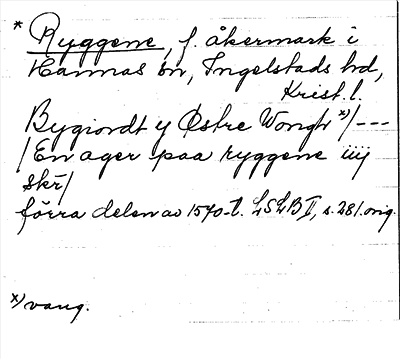 * Ryggene, f. åkermark i
Hannas sn, Ingelstads hd,
Krist. l.
Bygiordt y Østre Wongh x)/---
/En ager paa ryggene iiij
skr/
förra delen av 1570-t. LSLB II, s. 281. orig.
x) vang.